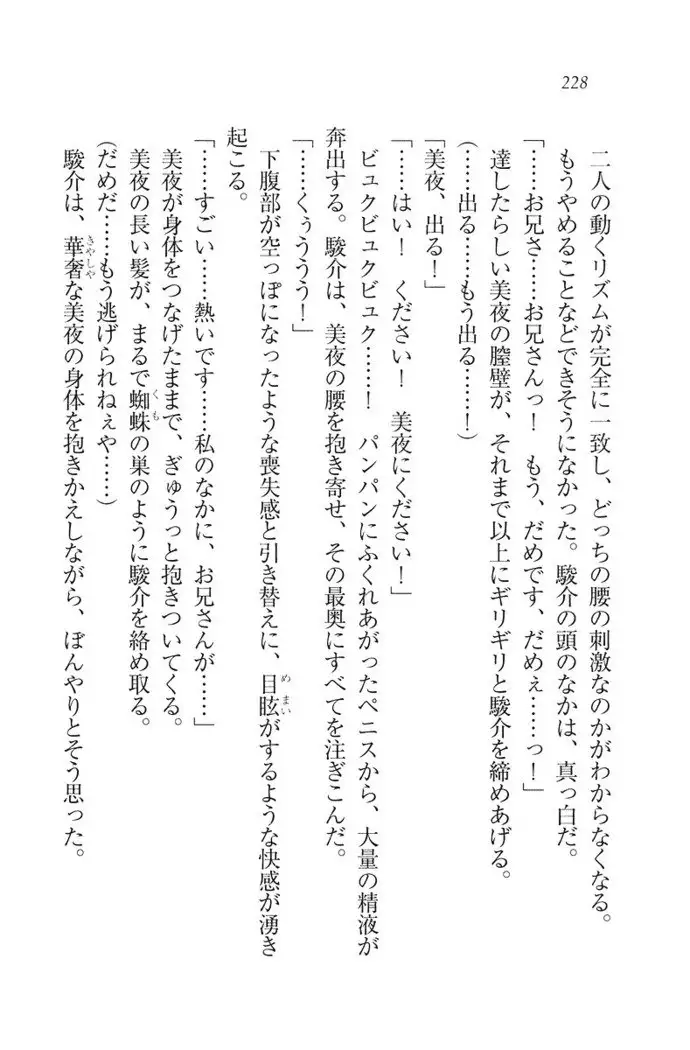 228
二人の動くリズムが完全に一致し、どっちの腰の刺激なのかがわからなくなる。
もうやめることなどできそうになかった。駿介の頭のなかは、真っ白だ。
「……お兄さ……お兄さんっ！　もう、だめです、だめぇ……っ！」
達したらしい美夜の膣壁が、それまで以上にギリギリと駿介を締めあげる。
（……出る……もう出る……！）
「美夜、出る！」
「……はい！　ください！　美夜にください！」
ビュクビュクビュク……！　パンパンにふくれあがったペニスから、大量の精液が
奔出する。駿介は、美夜の腰を抱き寄せ、その最奥にすべてを注ぎこんだ。
「……くぅううう！」
下腹部が空っぽになったような喪失感と引き替えに、目眩めまいがするような快感が湧き
起こる。
「……すごい……熱いです……私のなかに、お兄さんが……」
美夜が身体をつなげたままで、ぎゅうっと抱きついてくる。
美夜の長い髪が、まるで蜘蛛くもの巣のように駿介を絡め取る。
（だめだ……もう逃げられねぇや……）
駿介は、華奢きやしやな美夜の身体を抱きかえしながら、ぼんやりとそう思った。